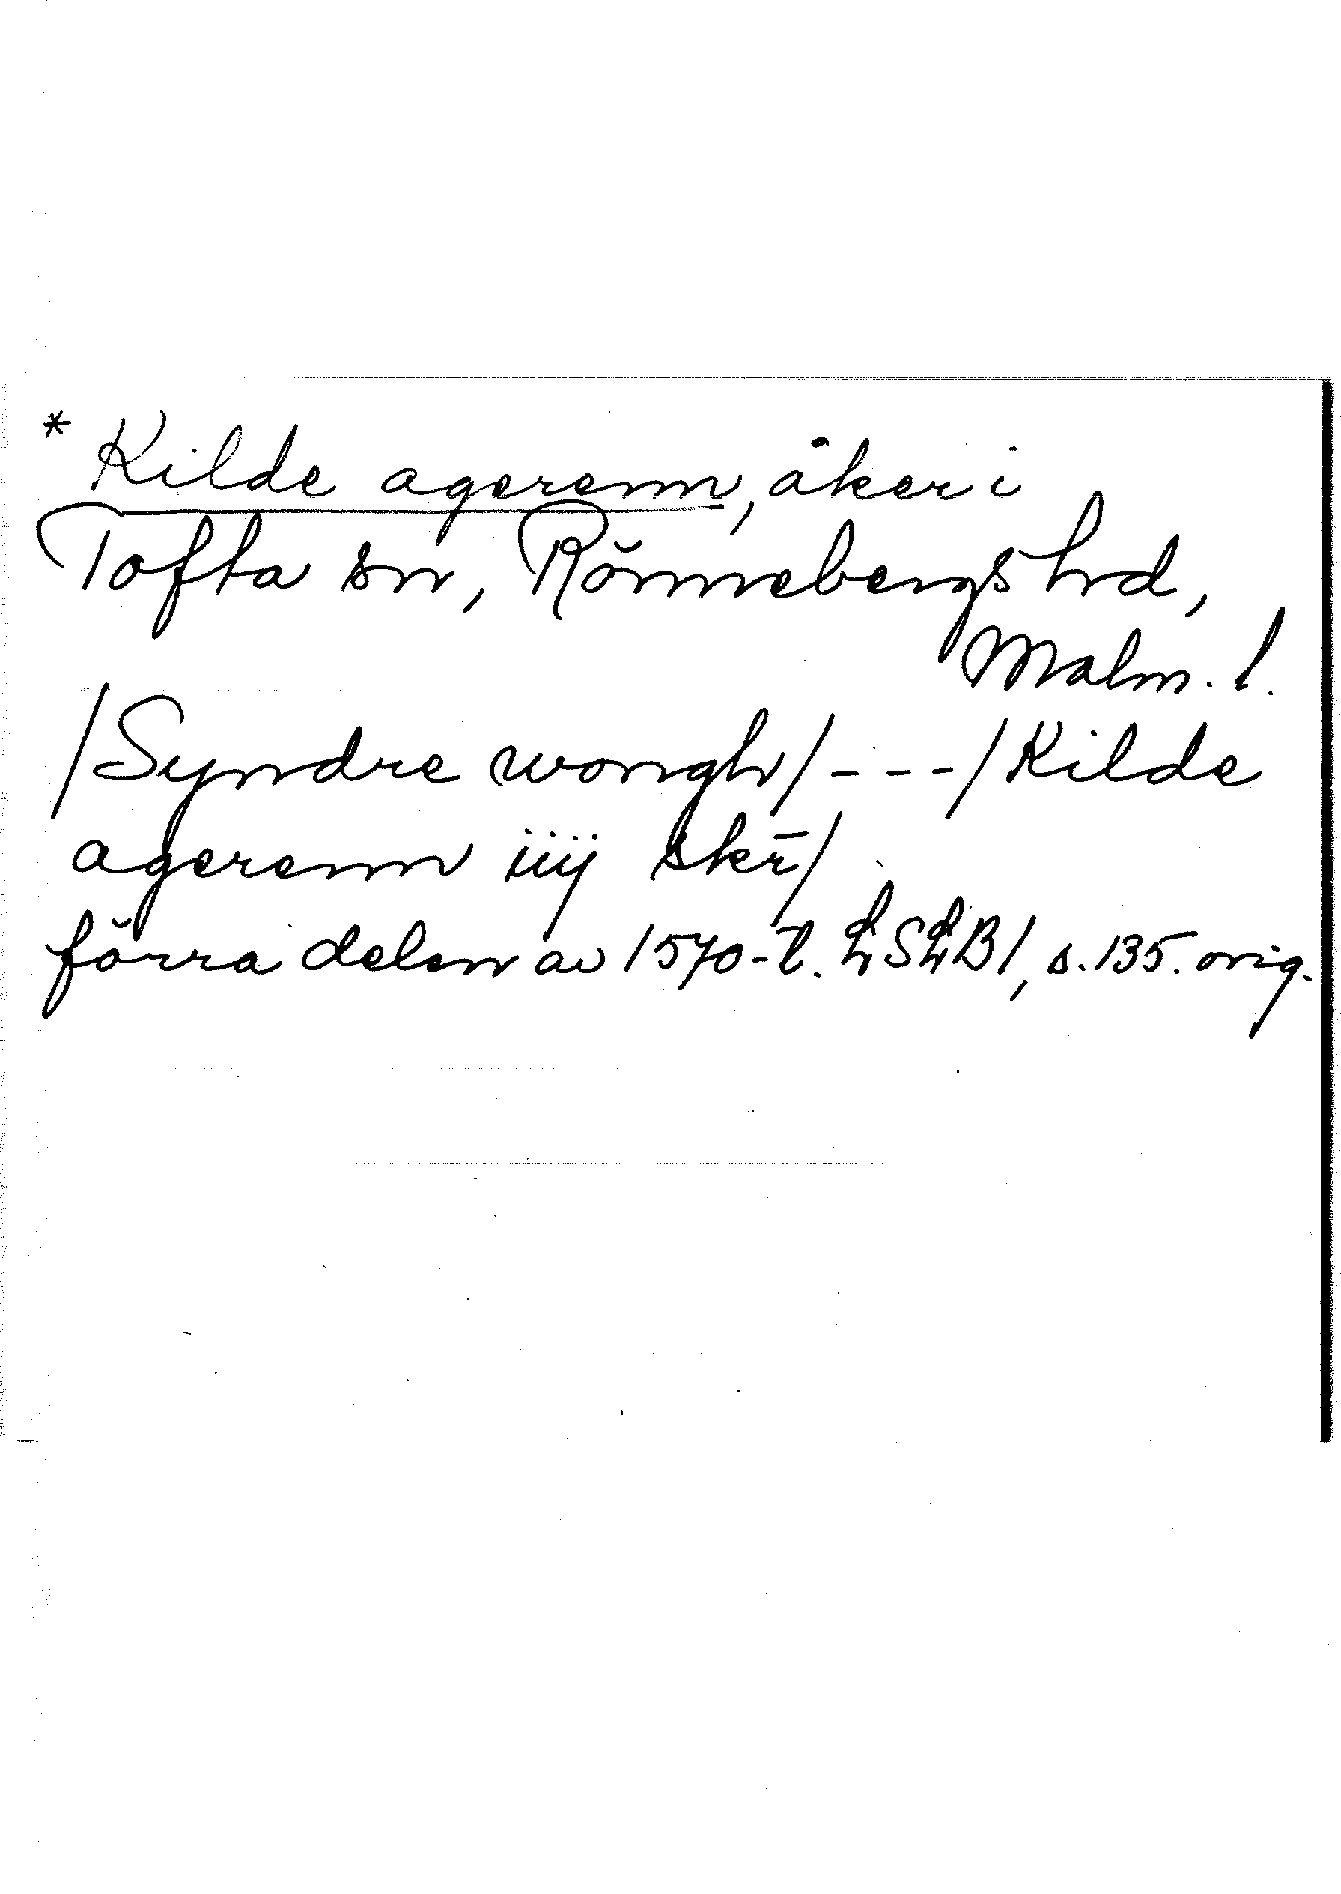 * Kilde agerenn, åker i
Tofta sn, Rönnebergs hrd,
Malm. l.
/Syndre wongh/ - - - /Kilde
agerenn iiij skr̄/
förra delen av 1570-t. LSLB1, s. 135. orig.